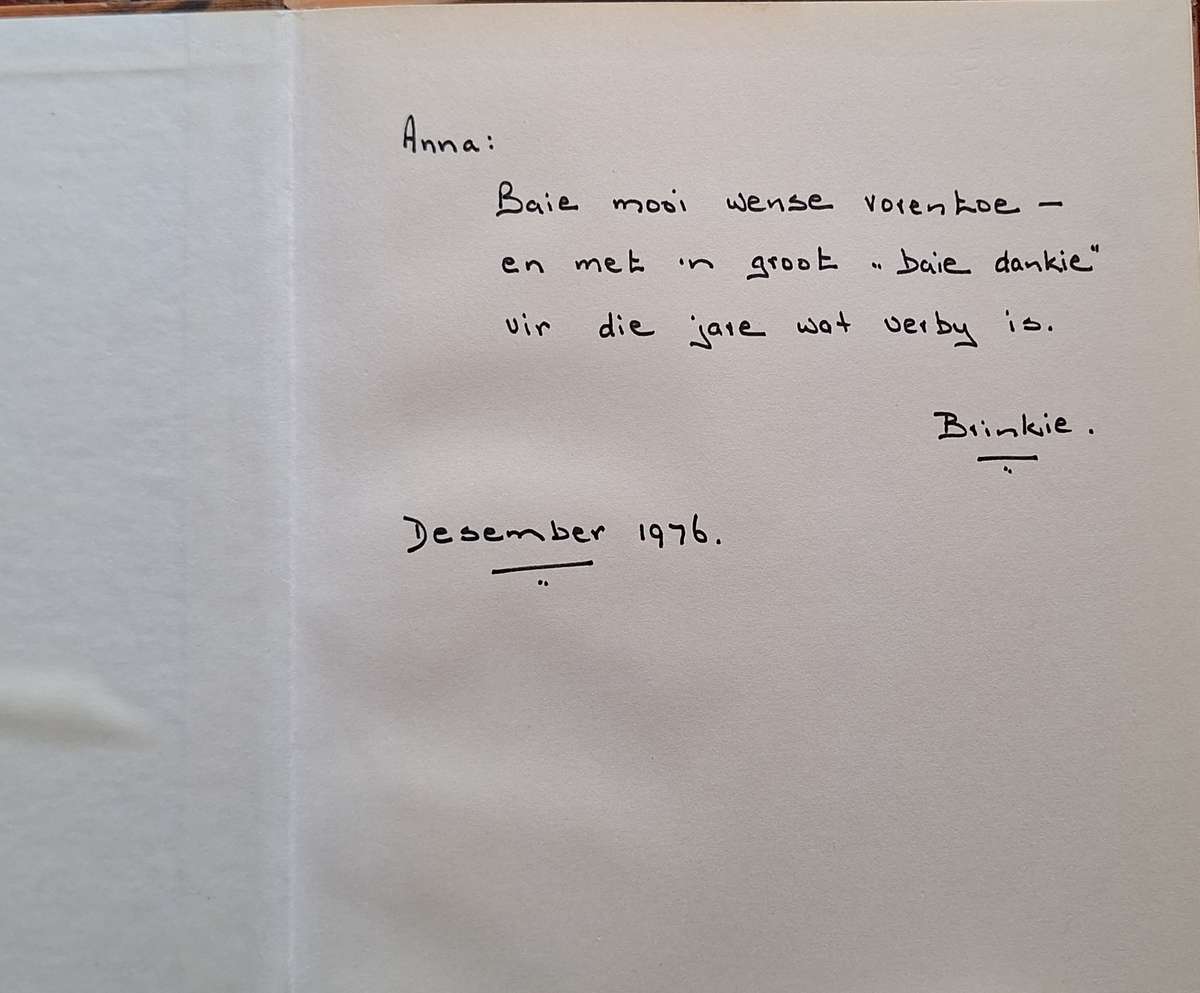 Anna:
Baie mooi wense vorentoe —
en met 'n groot „baie dankie"
vir die jare wat verby is.
Brinkie.
Desember 1976.